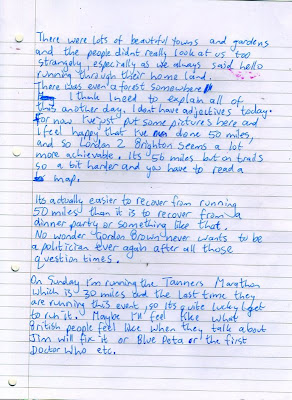 There were lots of beautiful towns and gardens
and the people didnt really look at us too
strangely, especially as we always said hello
running through their home land.
There was even a forest somewhere
I think I need to explain all of
this another day. I dont have adjectives today.
For now I've just put some pictures here and
I feel happy that I've done 50 miles,
and so London 2 Brighton seems a lot
more achievable. Its 56 miles but on trails
so a bit harder and you have to read a
map.
Its actually easier to recover from running
50 miles than it is to recover from a
dinner party or something like that.
No wonder Gordon Brown never wants to be
a politician ever again after all those
question times.
On Sunday I'm running the Tanners Marathon
which is 30 miles and the last time they
are running this event so its quite lucky I get
to run it. Maybe I'll feel like what
British people feel like when they talk about
Jim will fix it or Blue Peta or the first
Doctor Who etc.